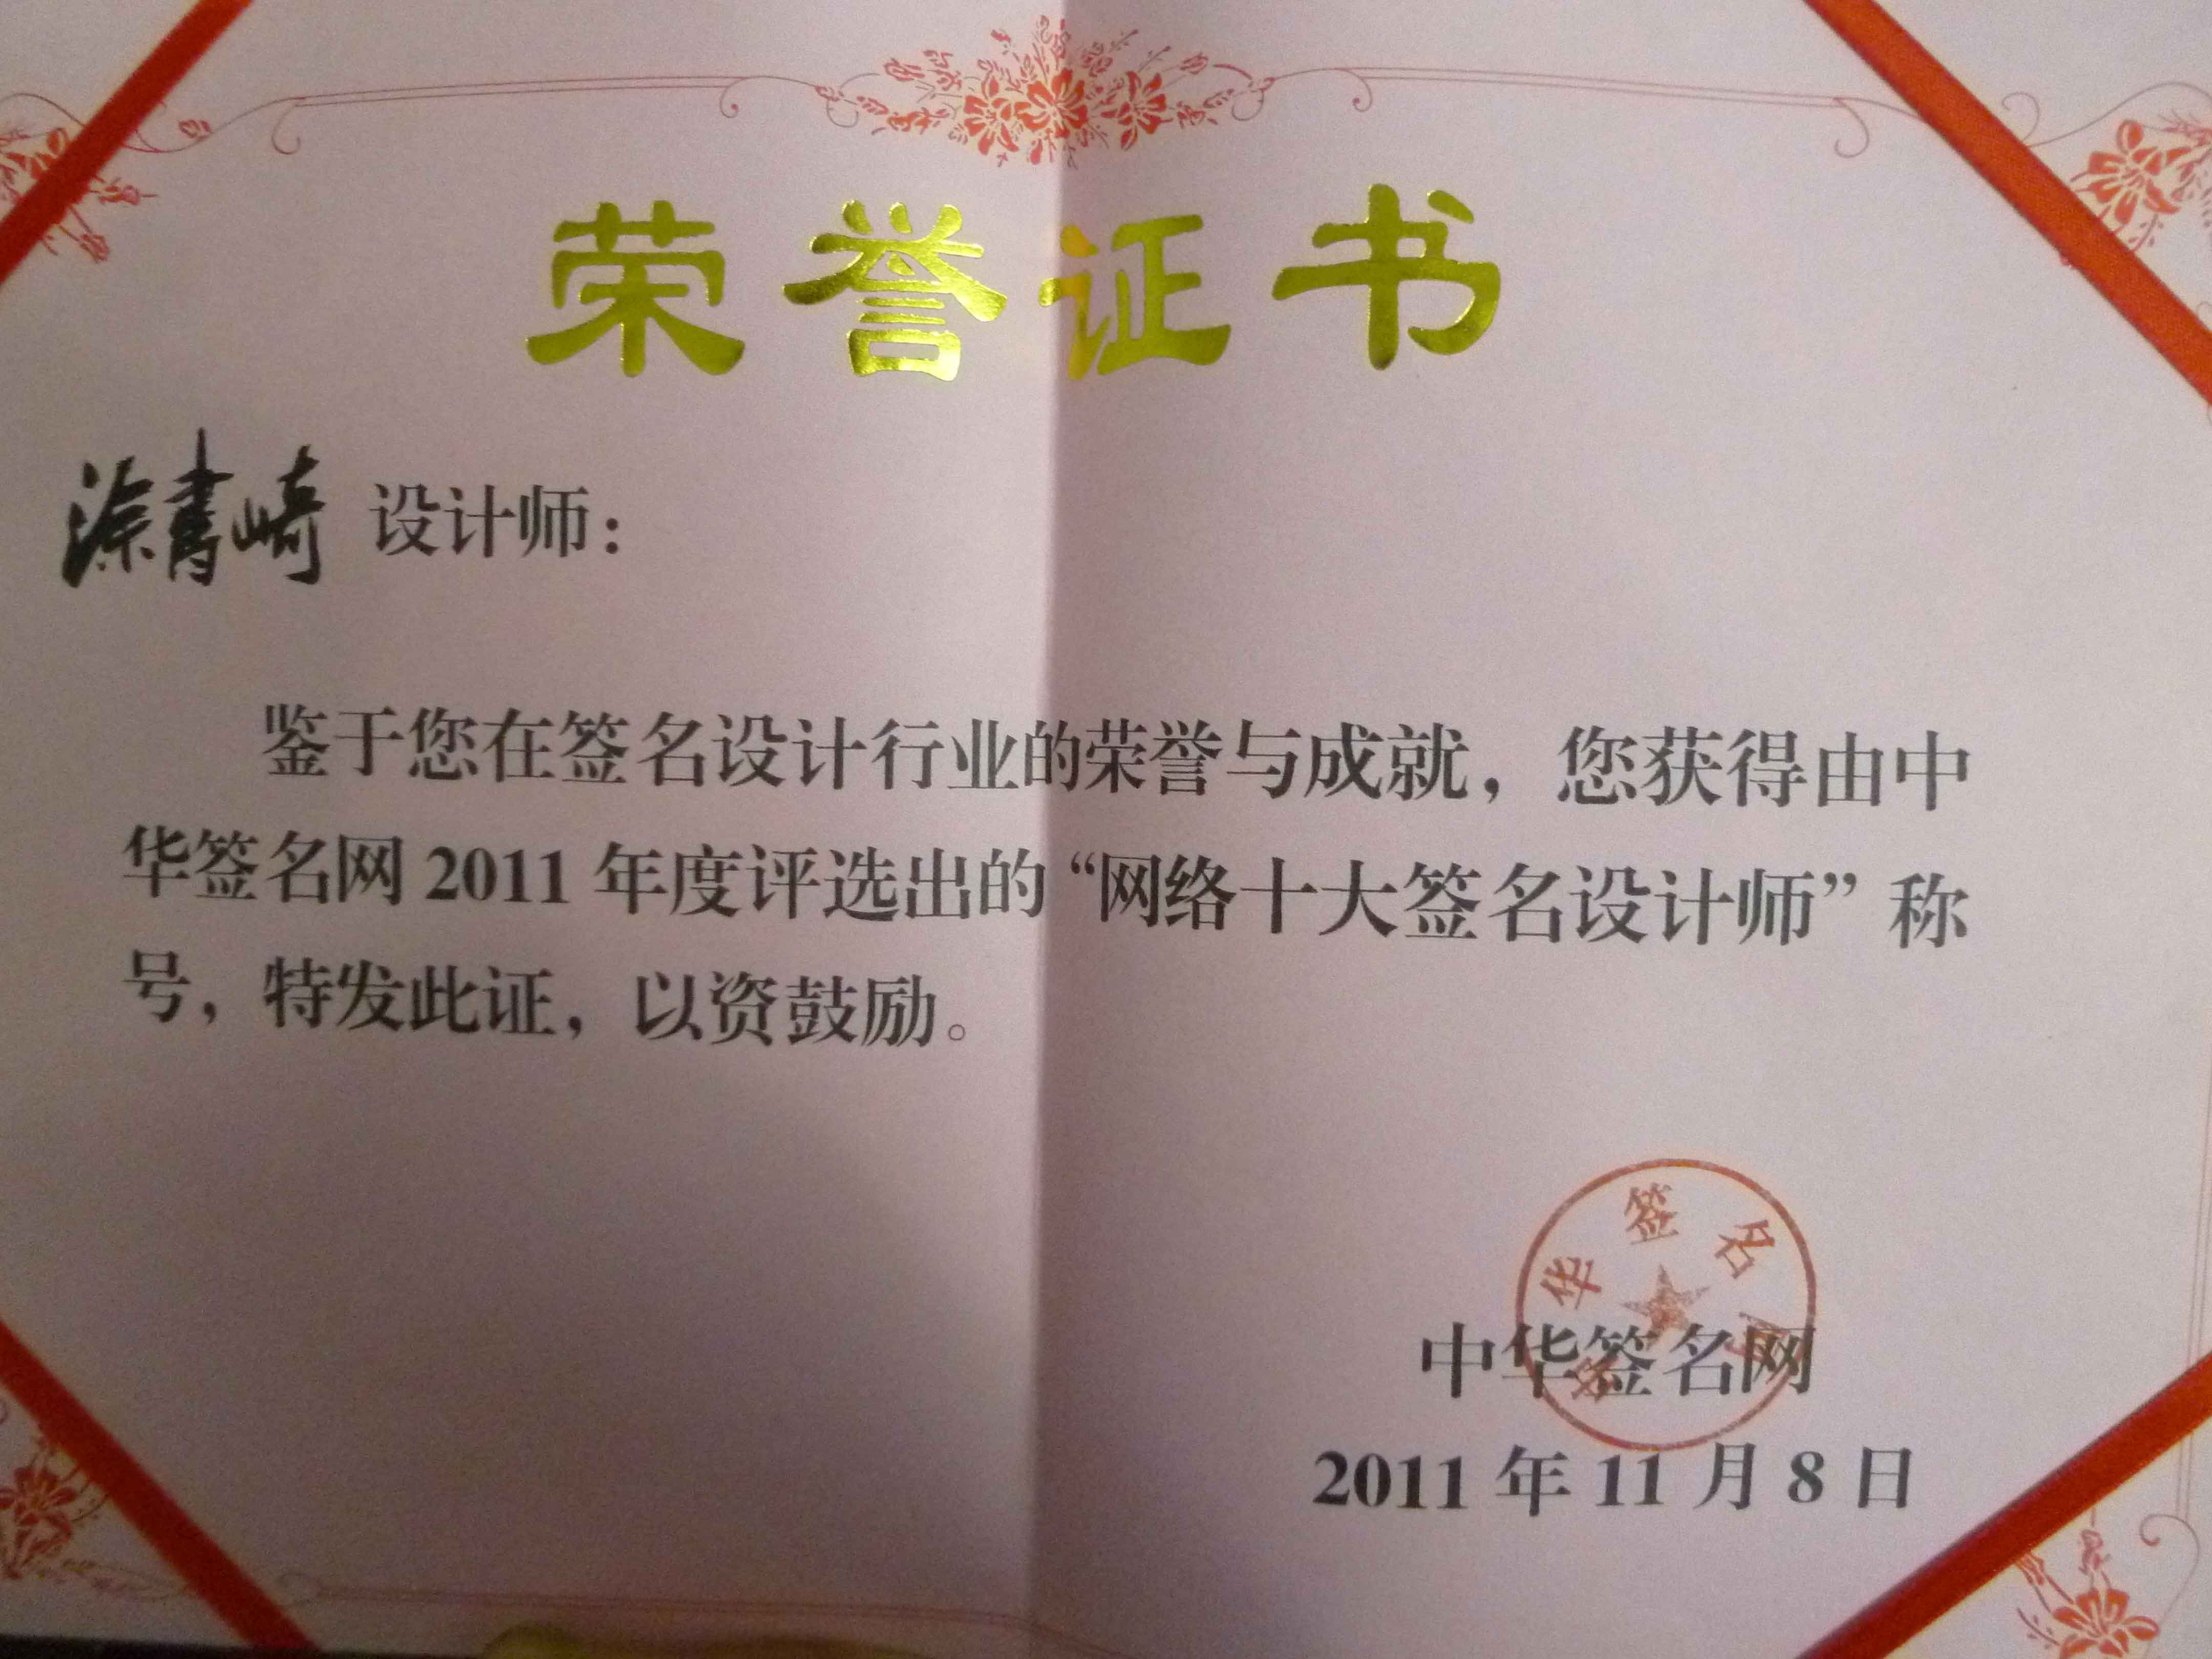 荣誉证书
涂書崎 设计师：
鉴于您在签名设计行业的荣誉与成就，您获得由中
华签名网 2011 年度评选出的“网络十大签名设计师”称
号，特发此证，以资鼓励。
中华签名网
中华签名网
2011 年 11 月 8 日